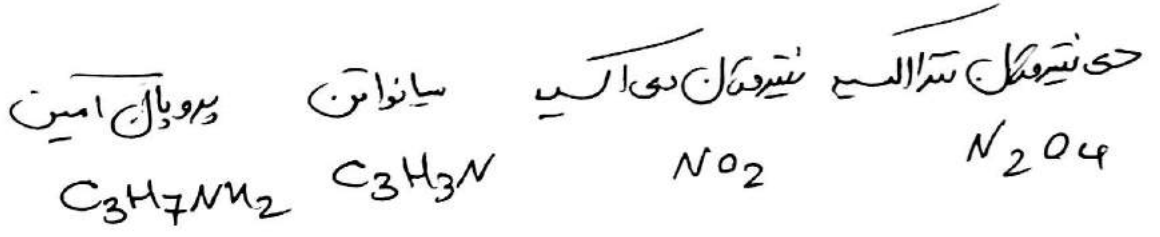 دی نیتروژن تترااکسید نیتروژن دی اکسید سیانواتن پروپان آمین
N2O4 NO2 C3H3N C3H7NH2